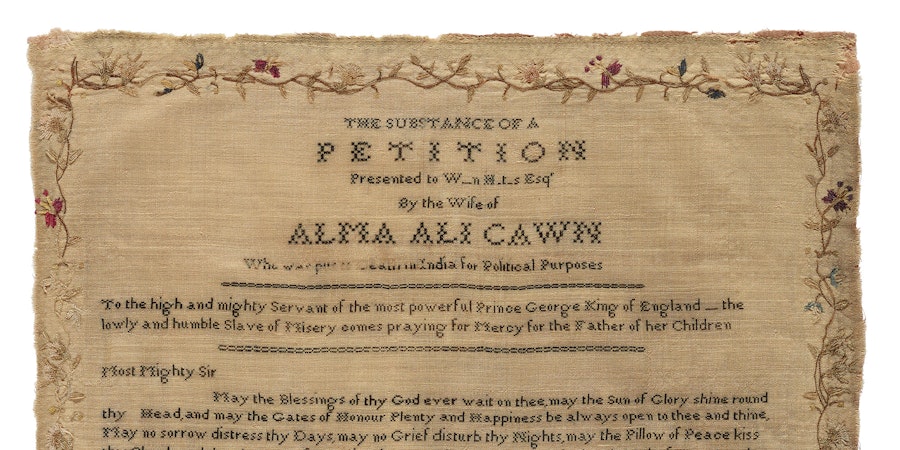 THE SUBSTANCE OF A
PETITION
Presented to W_n H_t_s Esqʳ
By the Wife of
ALMA ALI CAWN
Who was put to Death in India for Political Purposes
To the high and mighty Servant of the most powerful Prince George King of England _ the
lowly and humble Slave of Misery comes praying for Mercy for the Father of her Children
Most Mighty Sir
May the Blessings of thy God ever wait on thee, may the Sun of Glory shine round
thy Head, and may the Gates of Honour Plenty and Happiness be always open to thee and thine,
May no sorrow distress thy Days, may no Grief disturb thy Nights, may the Pillow of Peace kiss